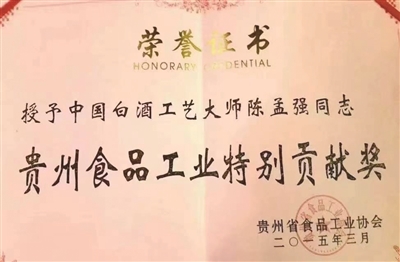 荣誉证书
HONORARY CREDENTIAL
授予中国白酒工艺大师陈孟强同志
贵州食品工业特别贡献奖
贵州省食品工业协会
二〇一五年三月